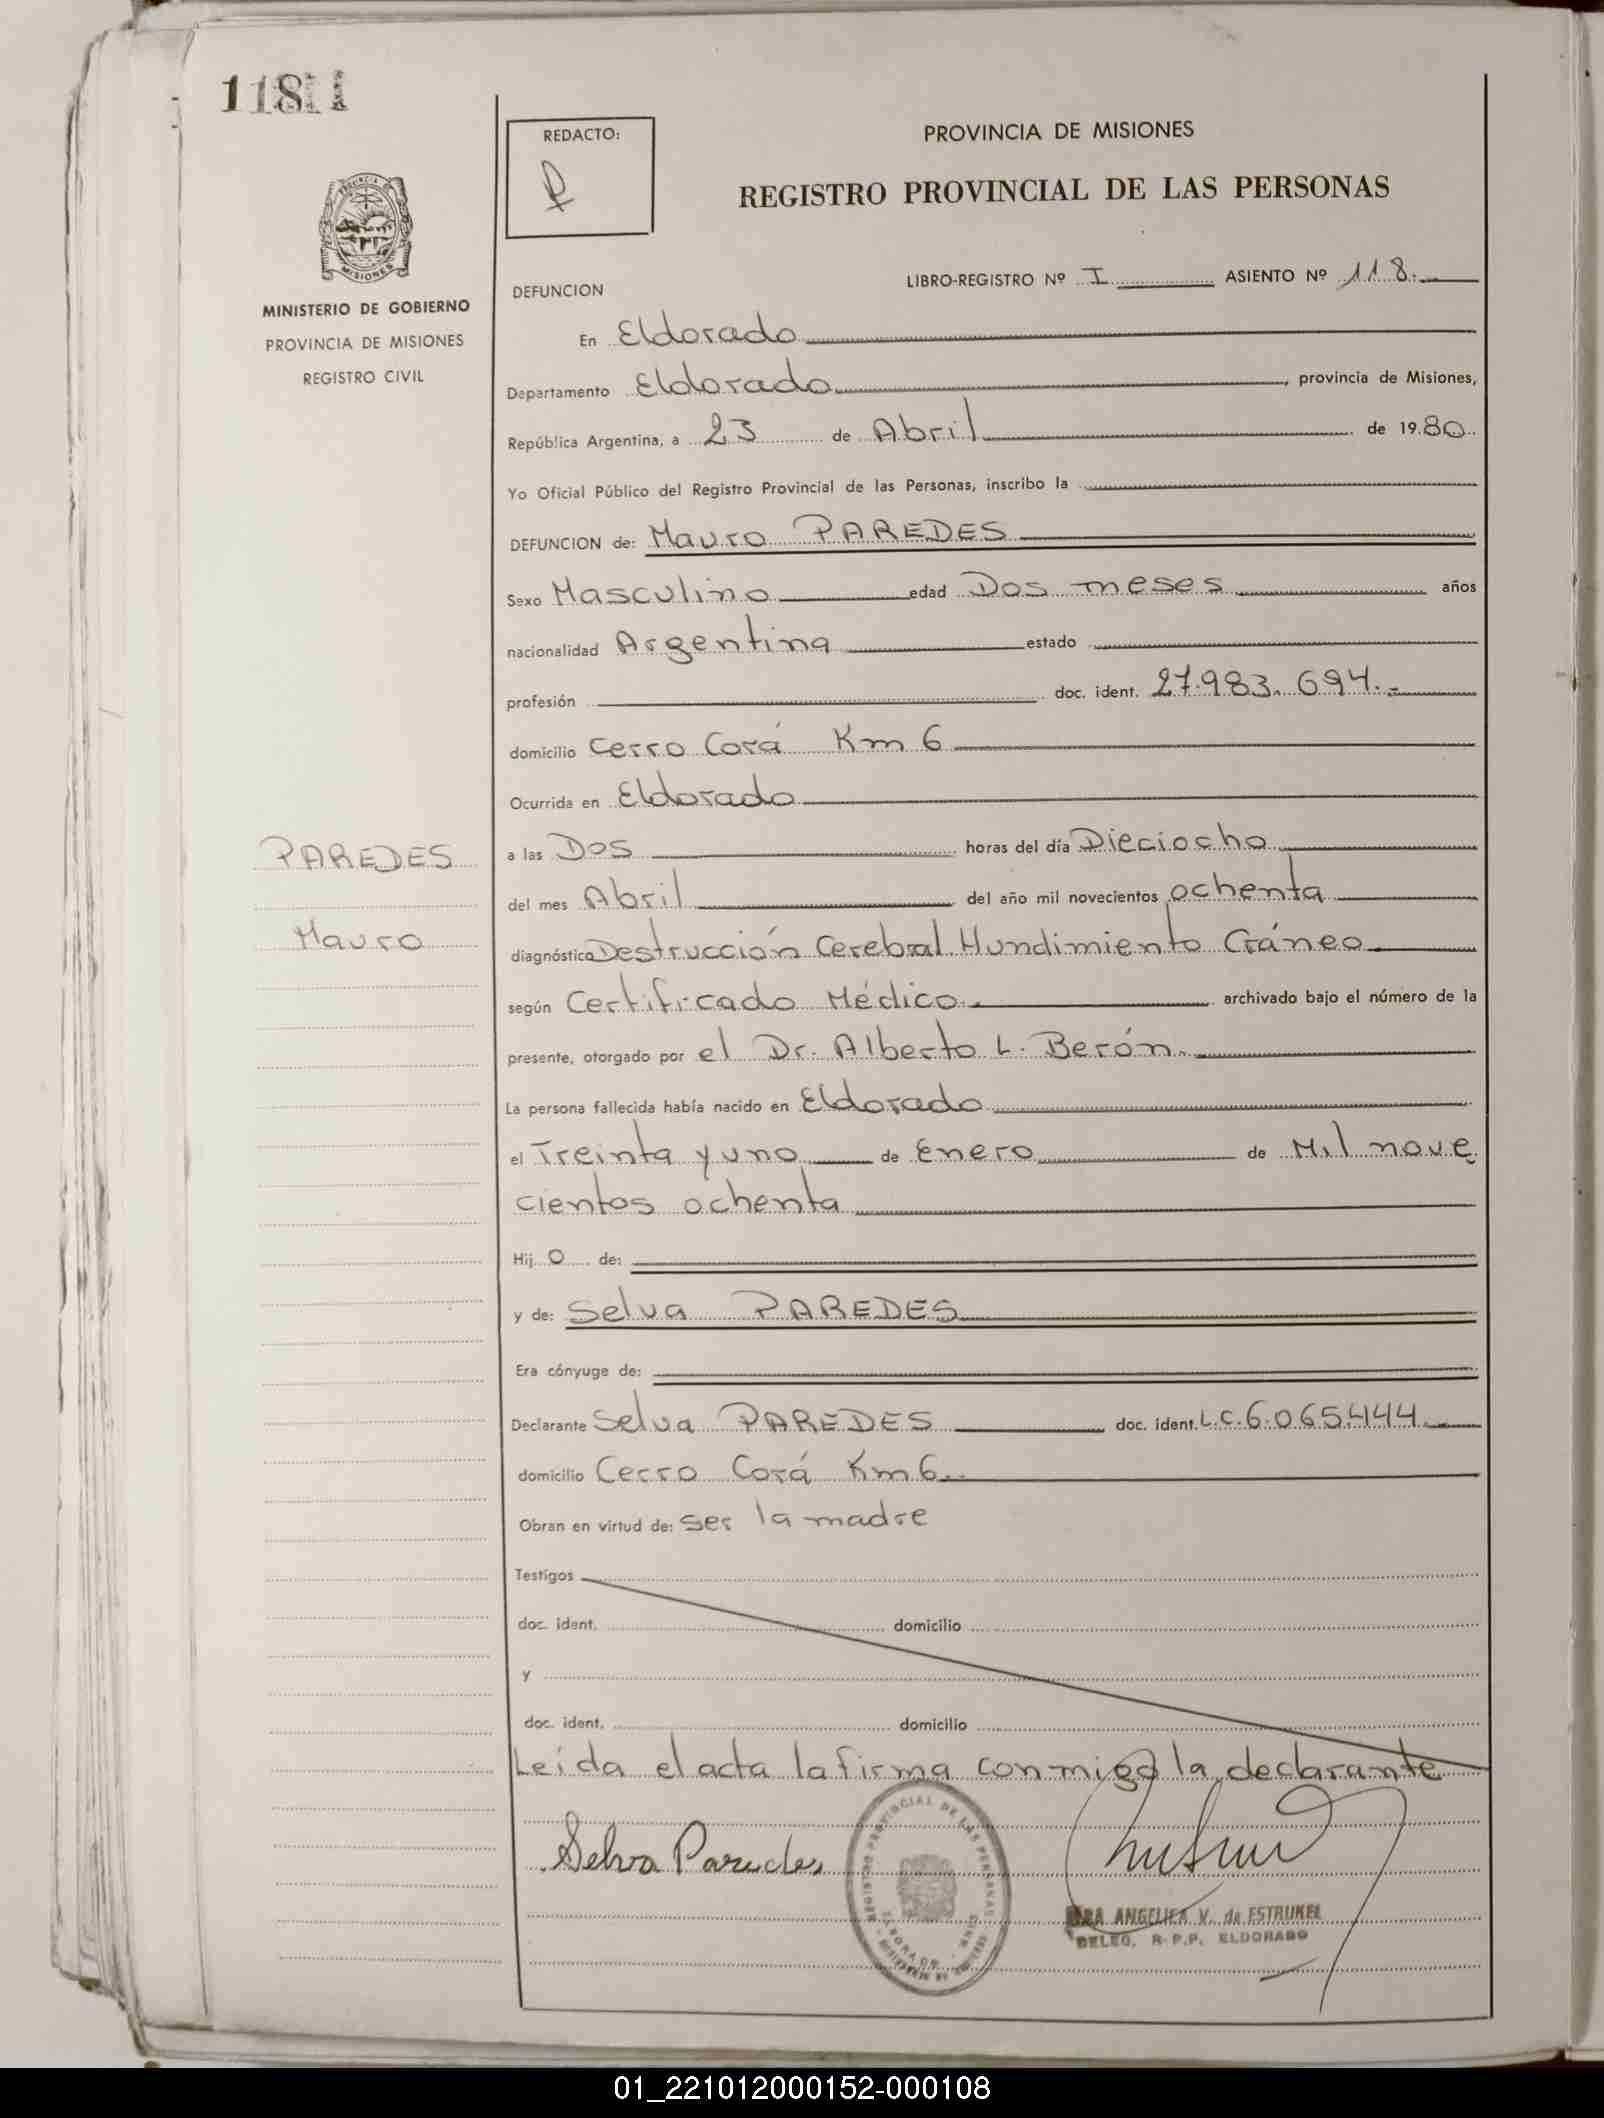 118
REDACTO:
PROVINCIA DE MISIONES
REGISTRO PROVINCIAL DE LAS PERSONAS
PROVINCIA DE
MISIONES
MINISTERIO DE GOBIERNO
PROVINCIA DE MISIONES
REGISTRO CIVIL
DEFUNCION
LIBRO-REGISTRO Nº I ASIENTO Nº 118.
En Eldorado
Departamento Eldorado, provincia de Misiones,
República Argentina, a 23 de Abril de 1980
Yo Oficial Público del Registro Provincial de las Personas, inscribo la
DEFUNCION de: Mauro PAREDES
Sexo Masculino edad Dos meses años
nacionalidad Argentina estado
profesión doc. ident. 27.983.694.-
domicilio Cerro Corá Km 6
Ocurrida en Eldorado
PAREDES
Mauro
a las Dos horas del día Dieciocho
del mes Abril del año mil novecientos ochenta
diagnóstico Destrucción Cerebral Hundimiento Cráneo
según Certificado Médico archivado bajo el número de la
presente, otorgado por el Dr. Alberto L. Berón.
La persona fallecida había nacido en Eldorado
el Treinta y uno de Enero de Mil nove
cientos ochenta
Hij o de:
y de: Selva PAREDES
Era cónyuge de:
Declarante Selva PAREDES doc. ident. L.C. 6.065.444
domicilio Cerro Corá Km 6.
Obran en virtud de: ser la madre
Testigos
doc. ident. domicilio
y
doc. ident. domicilio
Leída el acta la firma conmigo la declarante
Selva Paredes
REGISTRO PROVINCIAL DE LAS PERSONAS
ANGELICA V. de ESTRUKEL
DELEG. R.P.P. ELDORADO
01_221012000152-000108